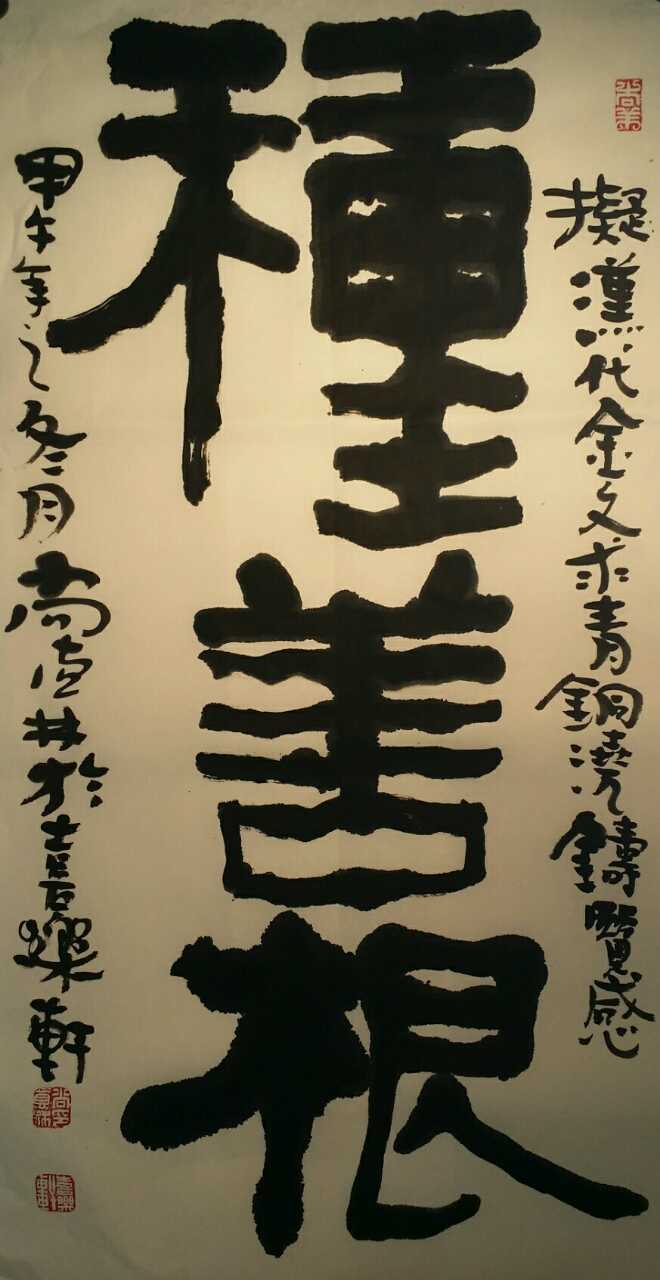 擬漢代金文求青銅澆鑄質感
種善根
甲午年之冬月尚林於喜樂軒